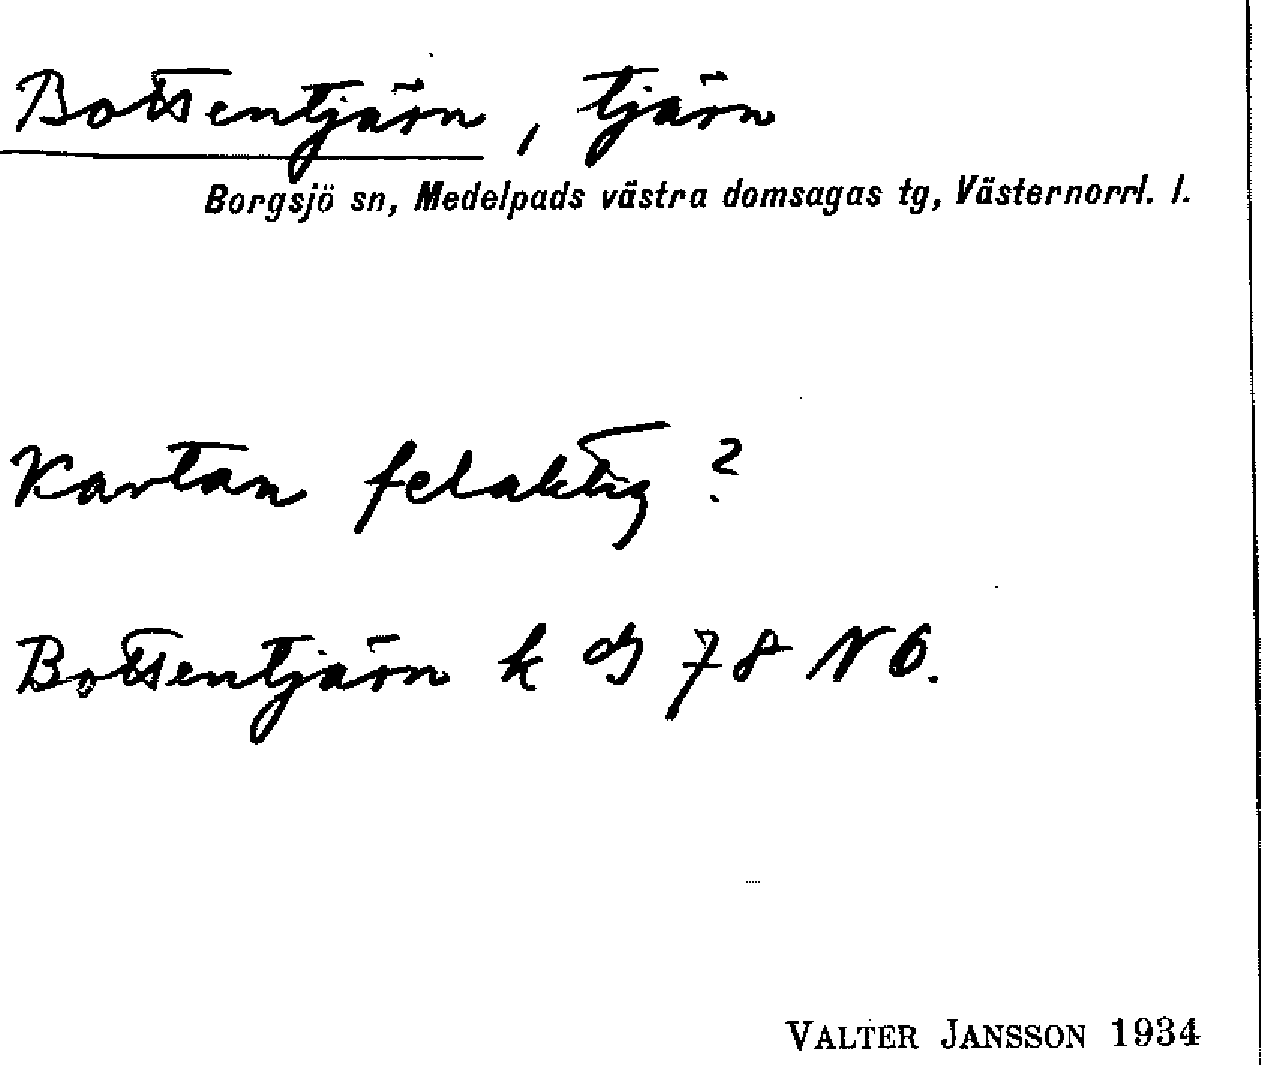 Bottsentjärn, tjärn
Borgsjö sn, Medelpads västra domsagas tg, Västernorrl. l.
Kartan felaktig?
Bottsentjärn k 78 NO.
VALTER JANSSON 1934